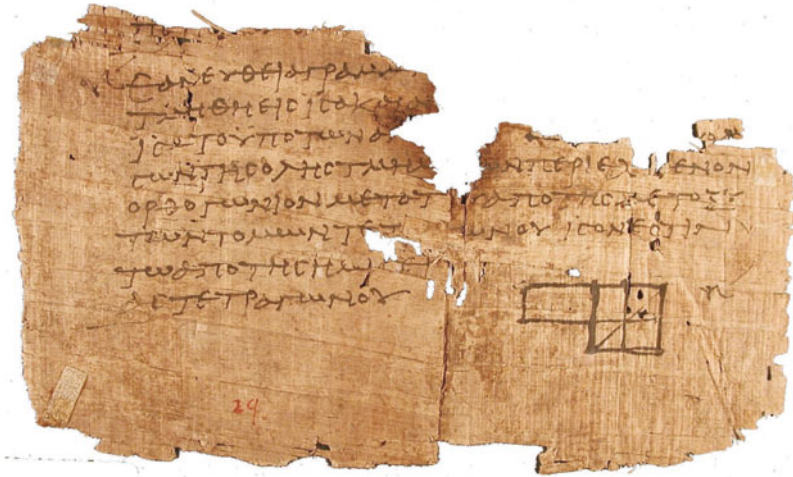 ΕΑΝΕΥΘΕΙΑΓΡΑΜΜ
ΤΜΗΘΗΕΙϹΙϹΑΚΑΙΑ
ΙϹΑΤΟΥΠΟΤΩΝΑ
ΤΩΝΤΗϹΟΛΗϹΤΜΗΜ ΩΝΠΕΡΙΕΧ ΜΕΝΟΝ
ΟΡΘΟΓΩΝΙΟΝΜΕΤΟΤ ΥΑΠΟΤΗϹΜΕΤΟΞΥ
ΤΩΝΤΟΜΩΝΤΕΤ ΩΝΟΥΙϹΟΝΕϹΤΙΝ
ΤΩΑΠΟΤΗϹΗΜΙ
ΑϹΤΕΤΡΑΓΩΝΟΥ
29